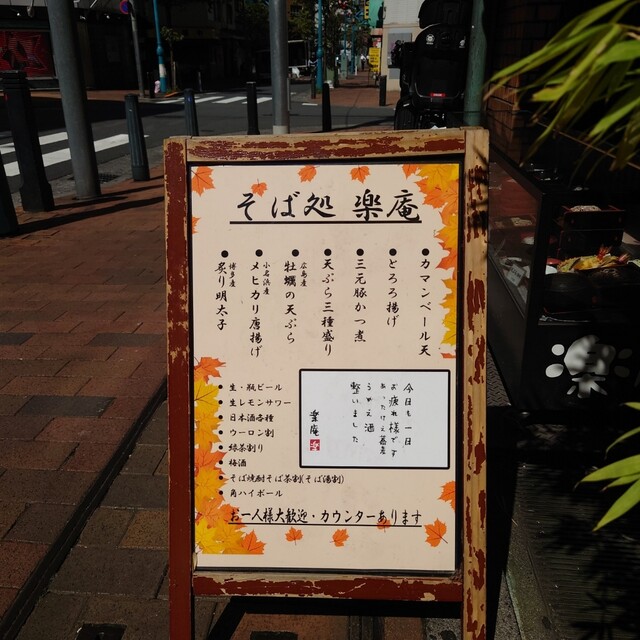 そば処 楽庵
●カマンベール天
●とろろ揚げ
●三元豚かつ煮
●天ぷら三種盛り
●広島産 牡蠣の天ぷら
●小名浜産 メヒカリ唐揚げ
●博多産 炙り明太子
今日も一日
お疲れ様です
あったけぇ蕎麦
うめぇ酒
整いました
楽庵
●生・瓶ビール
●生レモンサワー
●日本酒各種
●ウーロン割
●緑茶割り
●梅酒
●そば焼酎そば茶割(そば湯割)
●角ハイボール
お一人様大歓迎・カウンターあります